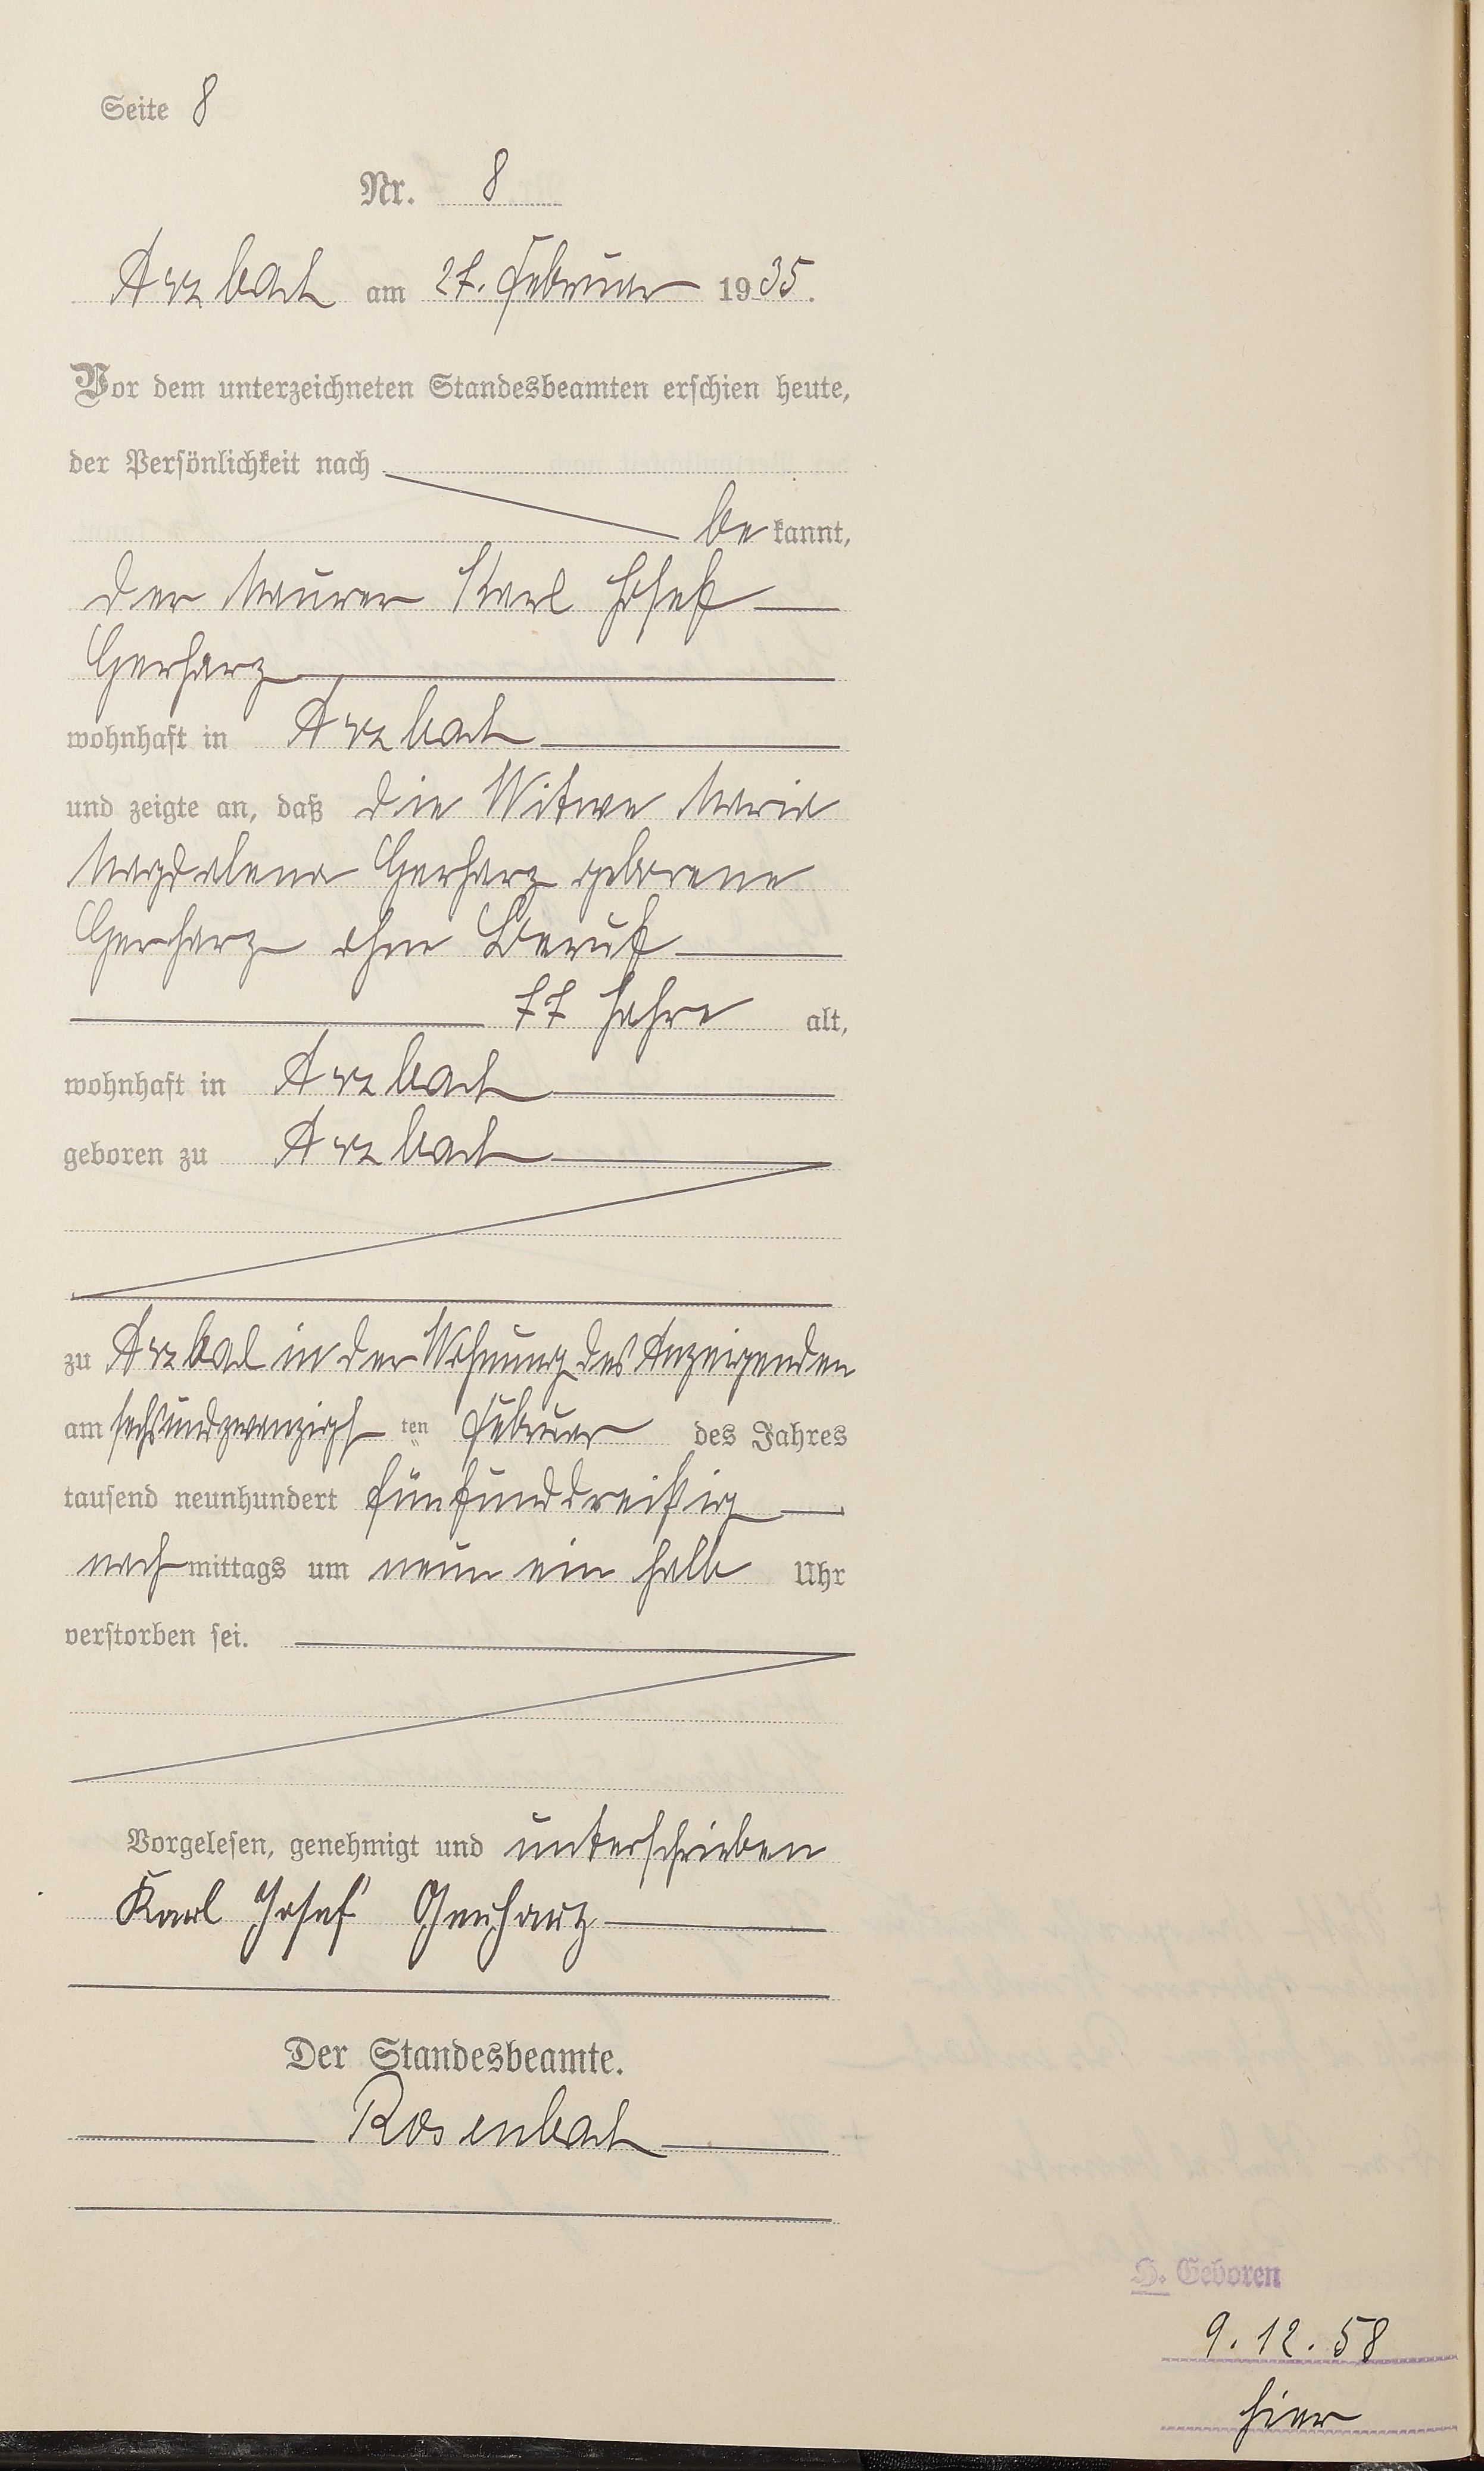 Seite 8
Nr. 8
Arzbach am 27. Februar 1935.
Vor dem unterzeichneten Standesbeamten erschien heute,
der Persönlichkeit nach
be kannt,
der Maurer Karl Josef
Gerharz
wohnhaft in Arzbach
und zeigte an, daß die Witwe Maria
Magdalena Gerharz geborene
Gerharz ohne Beruf
77 Jahre alt,
wohnhaft in Arzbach
geboren zu Arzbach
zu Arzbach in der Wohnung des Anzeigenden
am sechsundzwanzigsten Februar des Jahres
tausend neunhundert fünfunddreißig
nachmittags um neun ein halb Uhr
verstorben sei.
Vorgelesen, genehmigt und unterschrieben
Karl Josef Gerharz
Der Standesbeamte.
Rosenbach
H. Geboren
9.12.58
hier